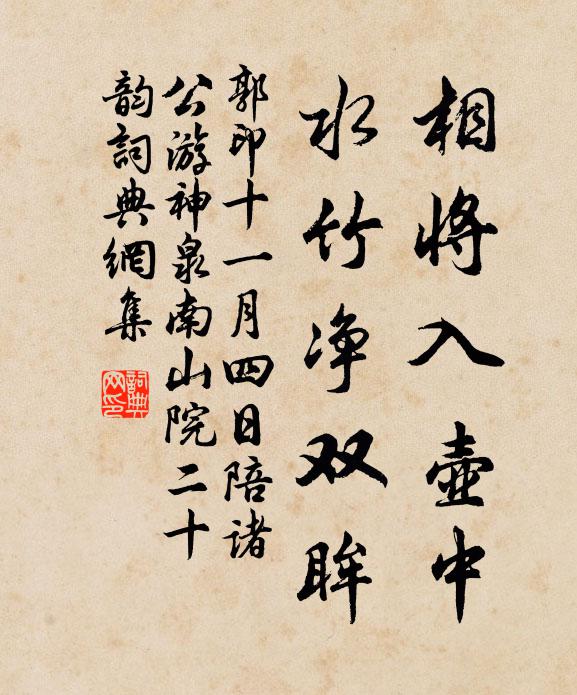 相将入壺中
水竹净双眸
郭印十一月四日陪诸
公游神泉南山院二十
韵詞典網集
詞典
网印